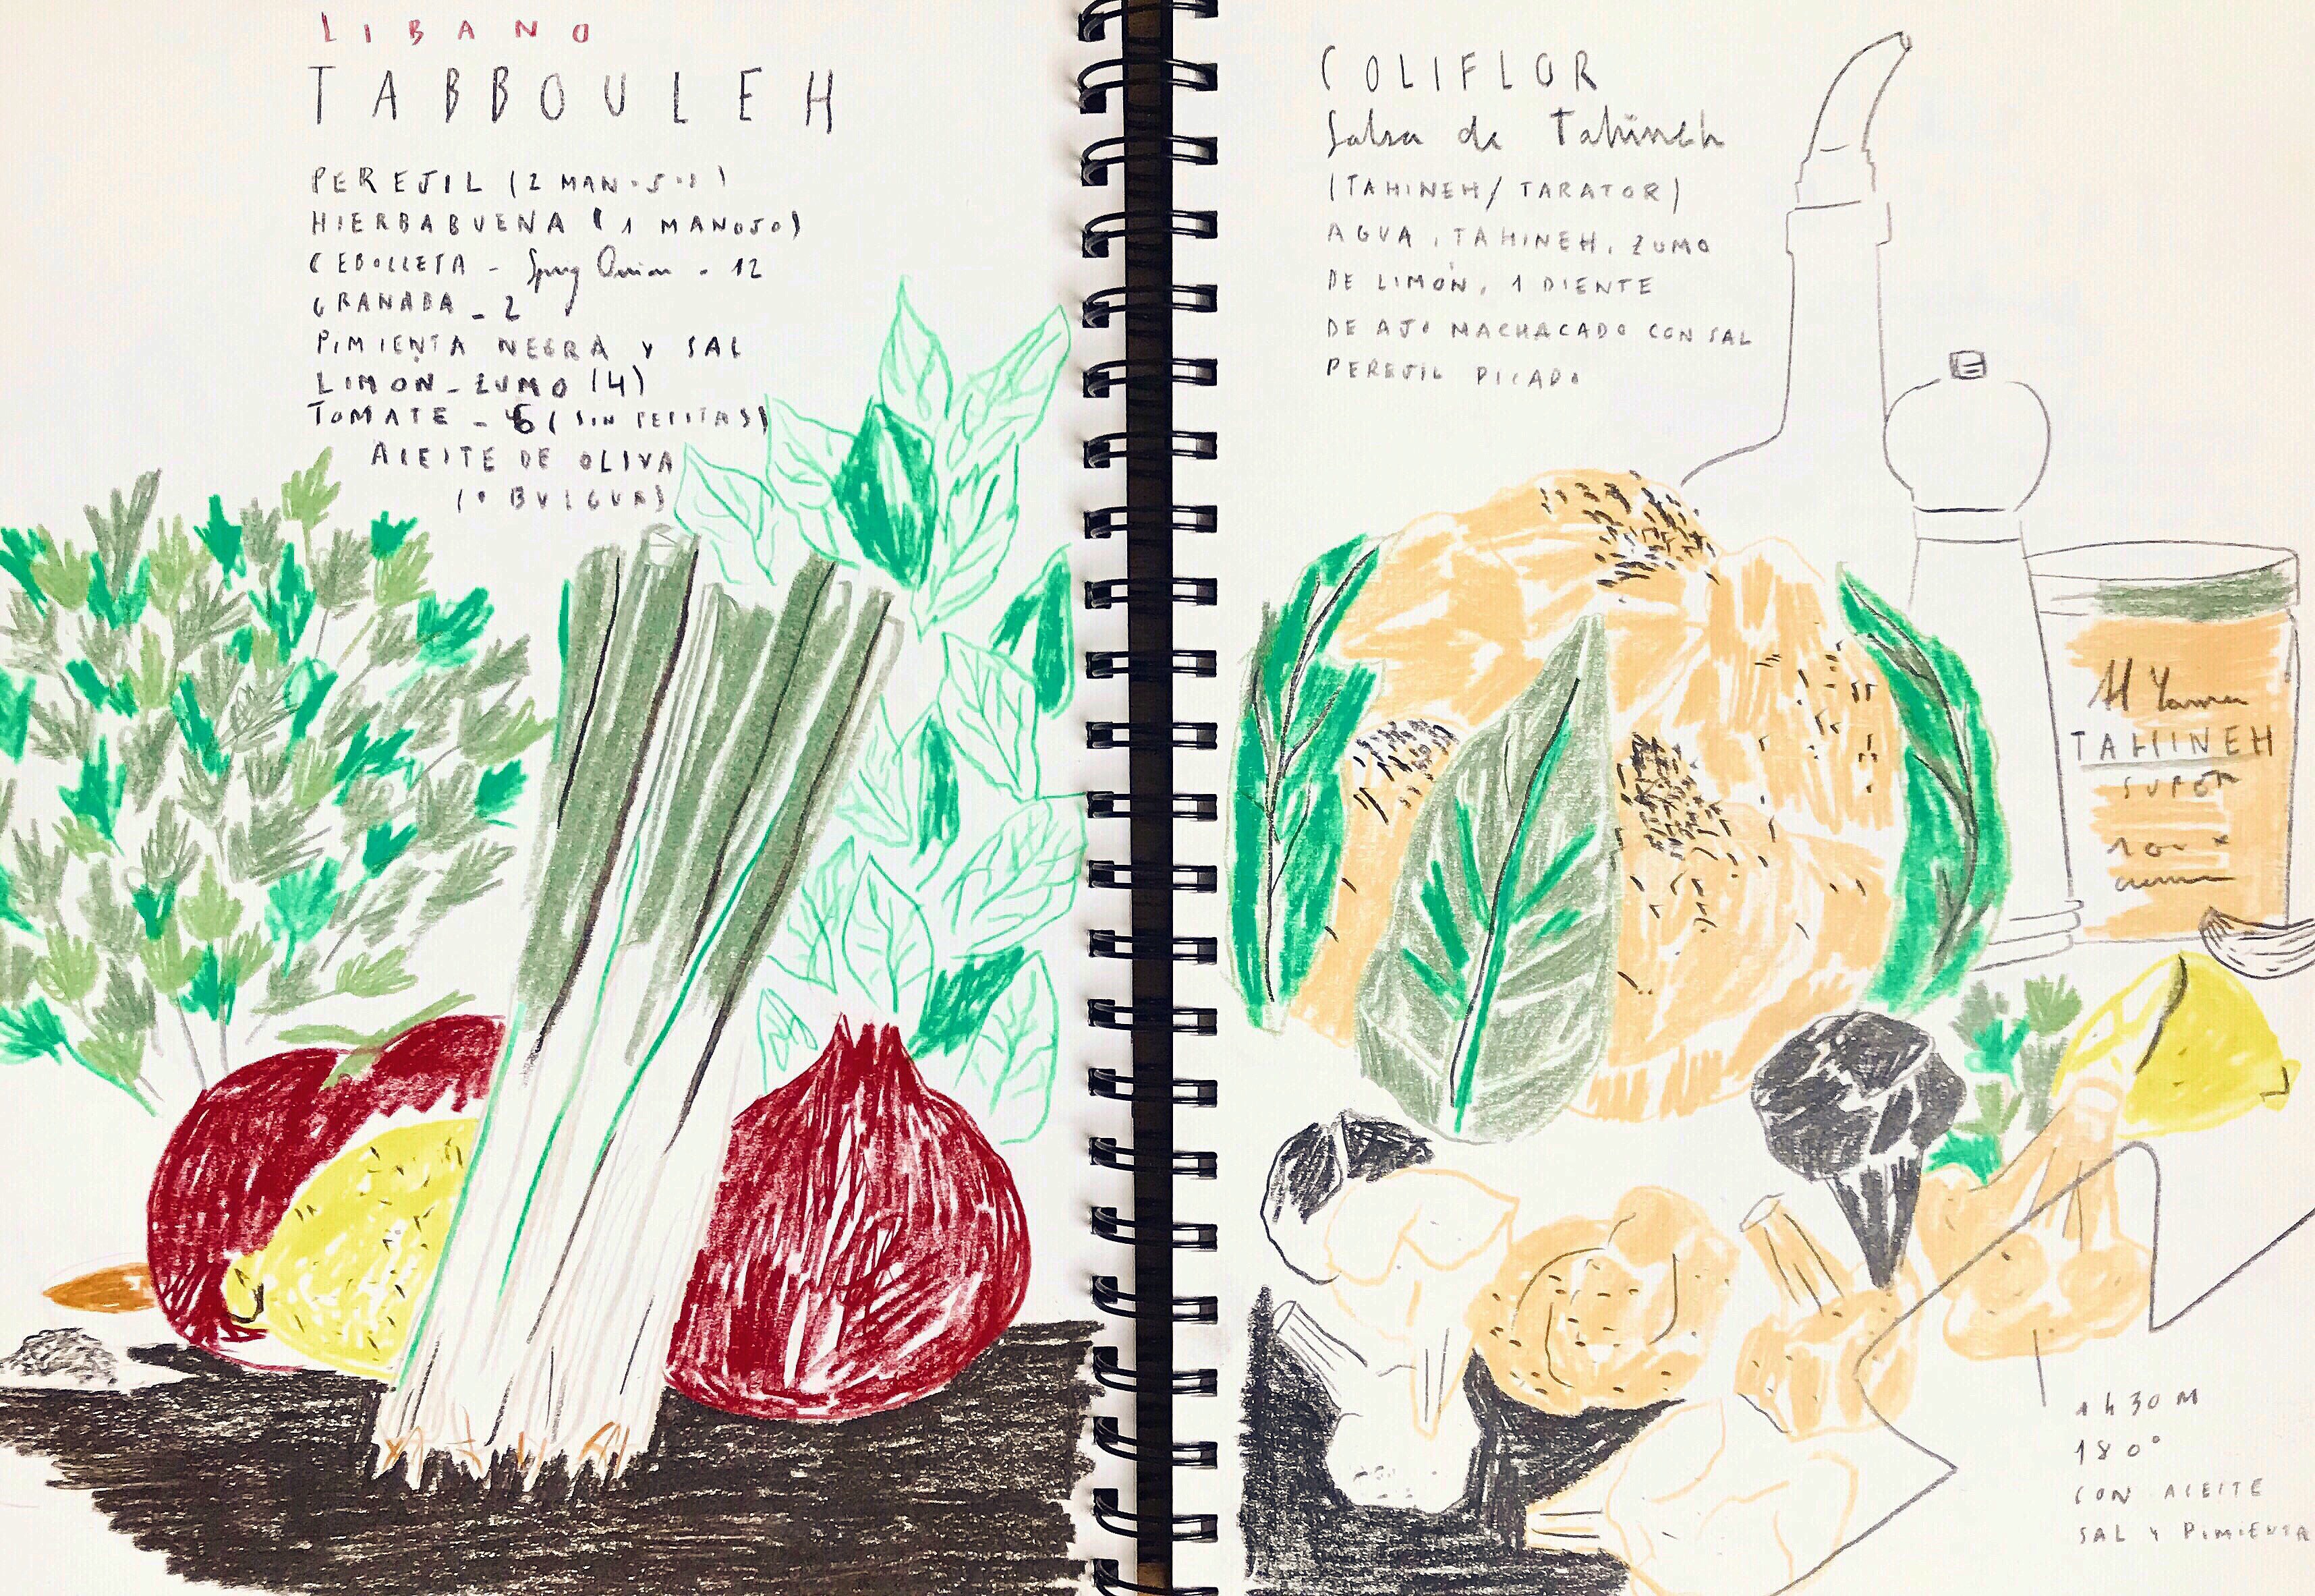 LIBANO
TABBOULEH
PEREJIL (2 MANOJOS)
HIERBABUENA (1 MANOJO)
CEBOLLETA - Spring Onion - 12
GRANADA - 2
PIMIENTA NEGRA Y SAL
LIMON - ZUMO (4)
TOMATE - 6 (SIN PEPITAS)
ACEITE DE OLIVA
(O BULGUR)
COLIFLOR
Salsa de Tahineh
(TAHINEH/TARATOR)
AGUA, TAHINEH, ZUMO
DE LIMÓN, 1 DIENTE
DE AJO MACHACADO CON SAL
PEREJIL PICADO
Al Yaman
TAHINEH
SUPER
1 h 30 M
180°
CON ACEITE
SAL Y PIMIENTA